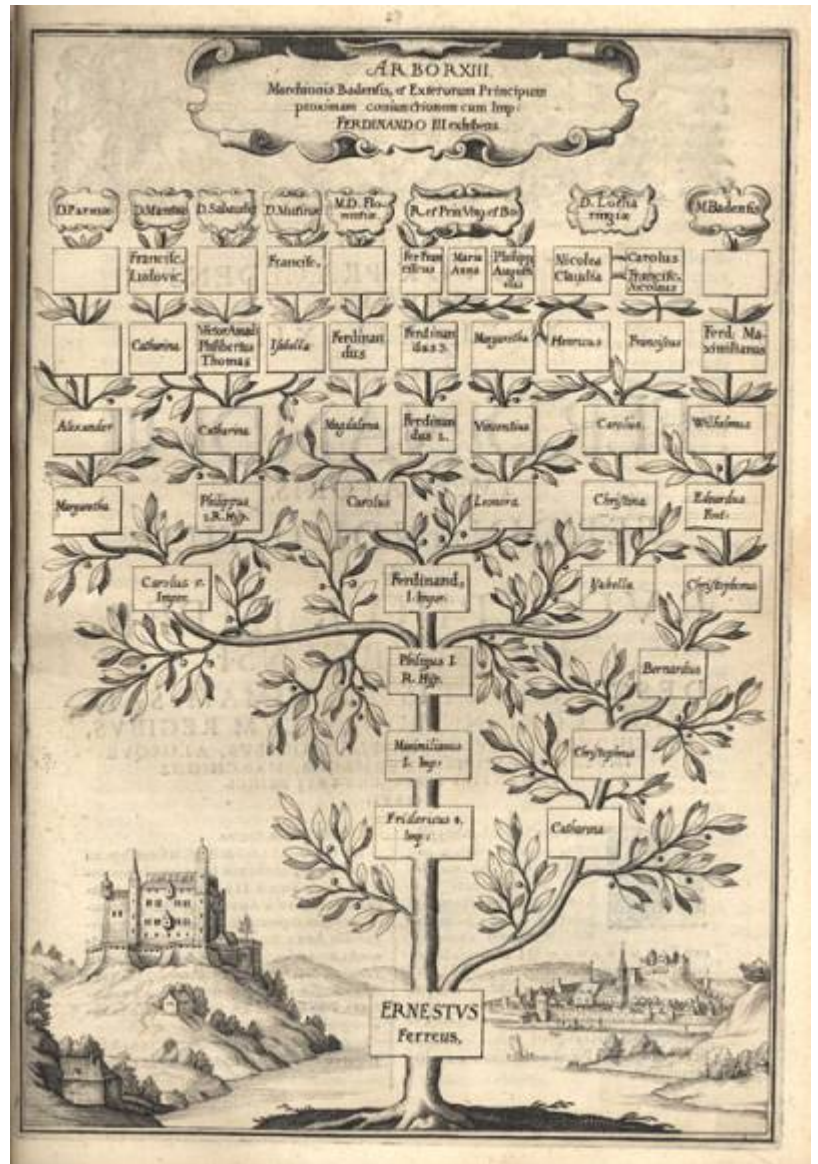 27
ARBOR XIII.
Marchionis Badensis, et Exterorum Principum
proximam coniunctionem cum Imp:
FERDINANDO III exhibens.
D. Parmæ
D. Mantuæ
D. Sabaudiæ
D. Mutinæ
M. D. Flo-
rentiæ
R. et Prin.
D. Lotha
ringiæ
M. Badensis
Francisc.
Ludovic.
Francisc.
Fer Fran
ciscus
Maria
Anna
Philipp
Augus
Nicolea
Claudia
Carolus
Francisc.
Nicolaus
Catharina
Victor Amad:
Philibertus
Thomas
Isabella
Ferdinan
dus
Ferdinan
dus 3.
Margaretha
Henricus
Franciscus
Ferd. Ma-
ximilianus
Alexander
Catharina
Magdalena
Ferdinan
dus 2.
Vincentius
Carolus.
Wilhelmus
Margaretha
Philippus
2. R. Hisp.
Carolus
Leonora
Christina
Eduardus
Fort:
Carolus 5.
Imper.
Ferdinand,
I. Imper.
Isabella
Christophorus
Philippus I.
R. Hisp.
Bernardus
Maximilianus
I. Imp:
Christophorus
Fridericus 4.
Imp:
Catharina
ERNESTVS
Ferreus,